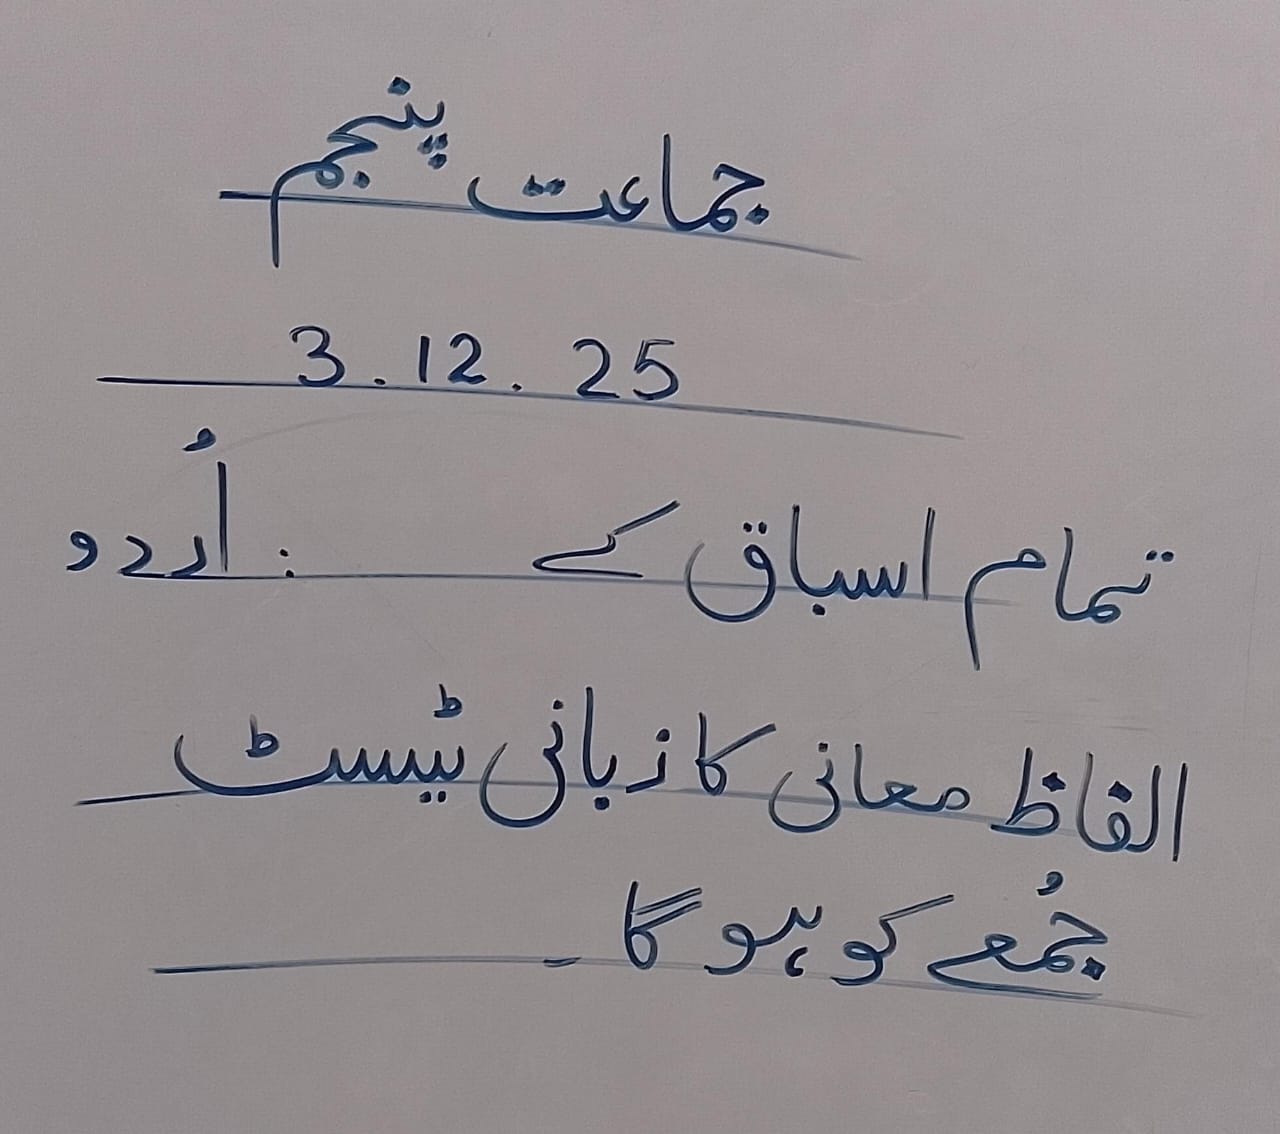 جماعت پنجم
3.12.25
اُردو : تمام اسباق کے
الفاظ معانی کا زبانی ٹیسٹ
جُمعے کو ہو گا ۔